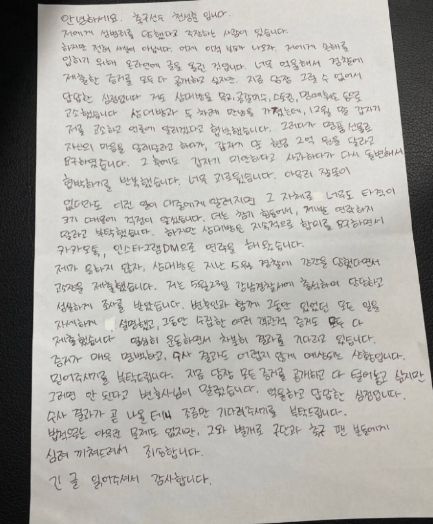 안녕하세요. 축구선수 천성훈 입니다.
저에게 성범죄를 당했다고 주장하는 사람이 있습니다.
하지만 전혀 사실이 아닙니다. 이미 이적 보도가 나오자, 저에게 피해를
입히기 위해 온라인에 글을 올린 것입니다. 너무 억울해서 경찰에
제출한 증거를 모두 다 공개하고 싶지만, 지금 당장 그럴 수 없어서
답답한 심정입니다. 저도 상대방을 무고, 공갈미수, 스토킹, 명예훼손 등으로
고소했습니다. 상대방과 두 차례 만남을 가졌는데, 12월 말 갑자기
저를 고소하고 언론에 알리겠다고 협박했습니다. 그러다가 명품 선물로
자신의 마음을 달래달라고 하다가, 갑자기 말 현금 2억 원을 달라고
요구하였습니다. 그 후에도 갑자기 미안하다고 사과하다가 다시 돌변해서
협박하기를 반복했습니다. 너무 괴로웠습니다. 아무리 잘못이
없더라도 이런 일이 대중에게 알려지면 그 자체로 너무도 타격이
크기 때문에 걱정이 앞섰습니다. 더는 경기 힘들어서, 제발 연락하지
말라고 부탁했습니다. 하지만 상대방은 지속적으로 합의를 요구하면서
카카오톡, 인스타그램DM으로 연락을 해왔습니다.
제가 응하지 않자, 상대방은 지난 5월 경찰에 강간을 당했다면서
고소장을 제출했습니다. 저는 5월23일 강남경찰서에 출석하여 당당하고
성실하게 조사를 받았습니다. 변호인과 함께 그동안 있었던 모든 일을
자세하게 설명했고, 그동안 수집한 여러 객관적 증거도 모두 다
제출했습니다. 열심히 운동하면서 차분히 결과를 기다리고 있습니다.
증거가 매우 명백하고, 수사 결과도 어렵지 않게 예상되는 상황입니다.
믿어주시기를 부탁드립니다. 지금 당장 모든 증거를 공개하고 다 털어놓고 싶지만
그러면 안 된다고 변호사님이 말렸습니다. 억울하고 답답한 심정입니다.
수사 결과가 곧 나올 테니 조금만 기다려주시기를 부탁드립니다.
법적으로는 아무런 문제도 없지만, 그와 별개로 구단과 축구 팬 분들에게
심려 끼쳐드려서 죄송합니다.
긴 글 읽어주셔서 감사합니다.